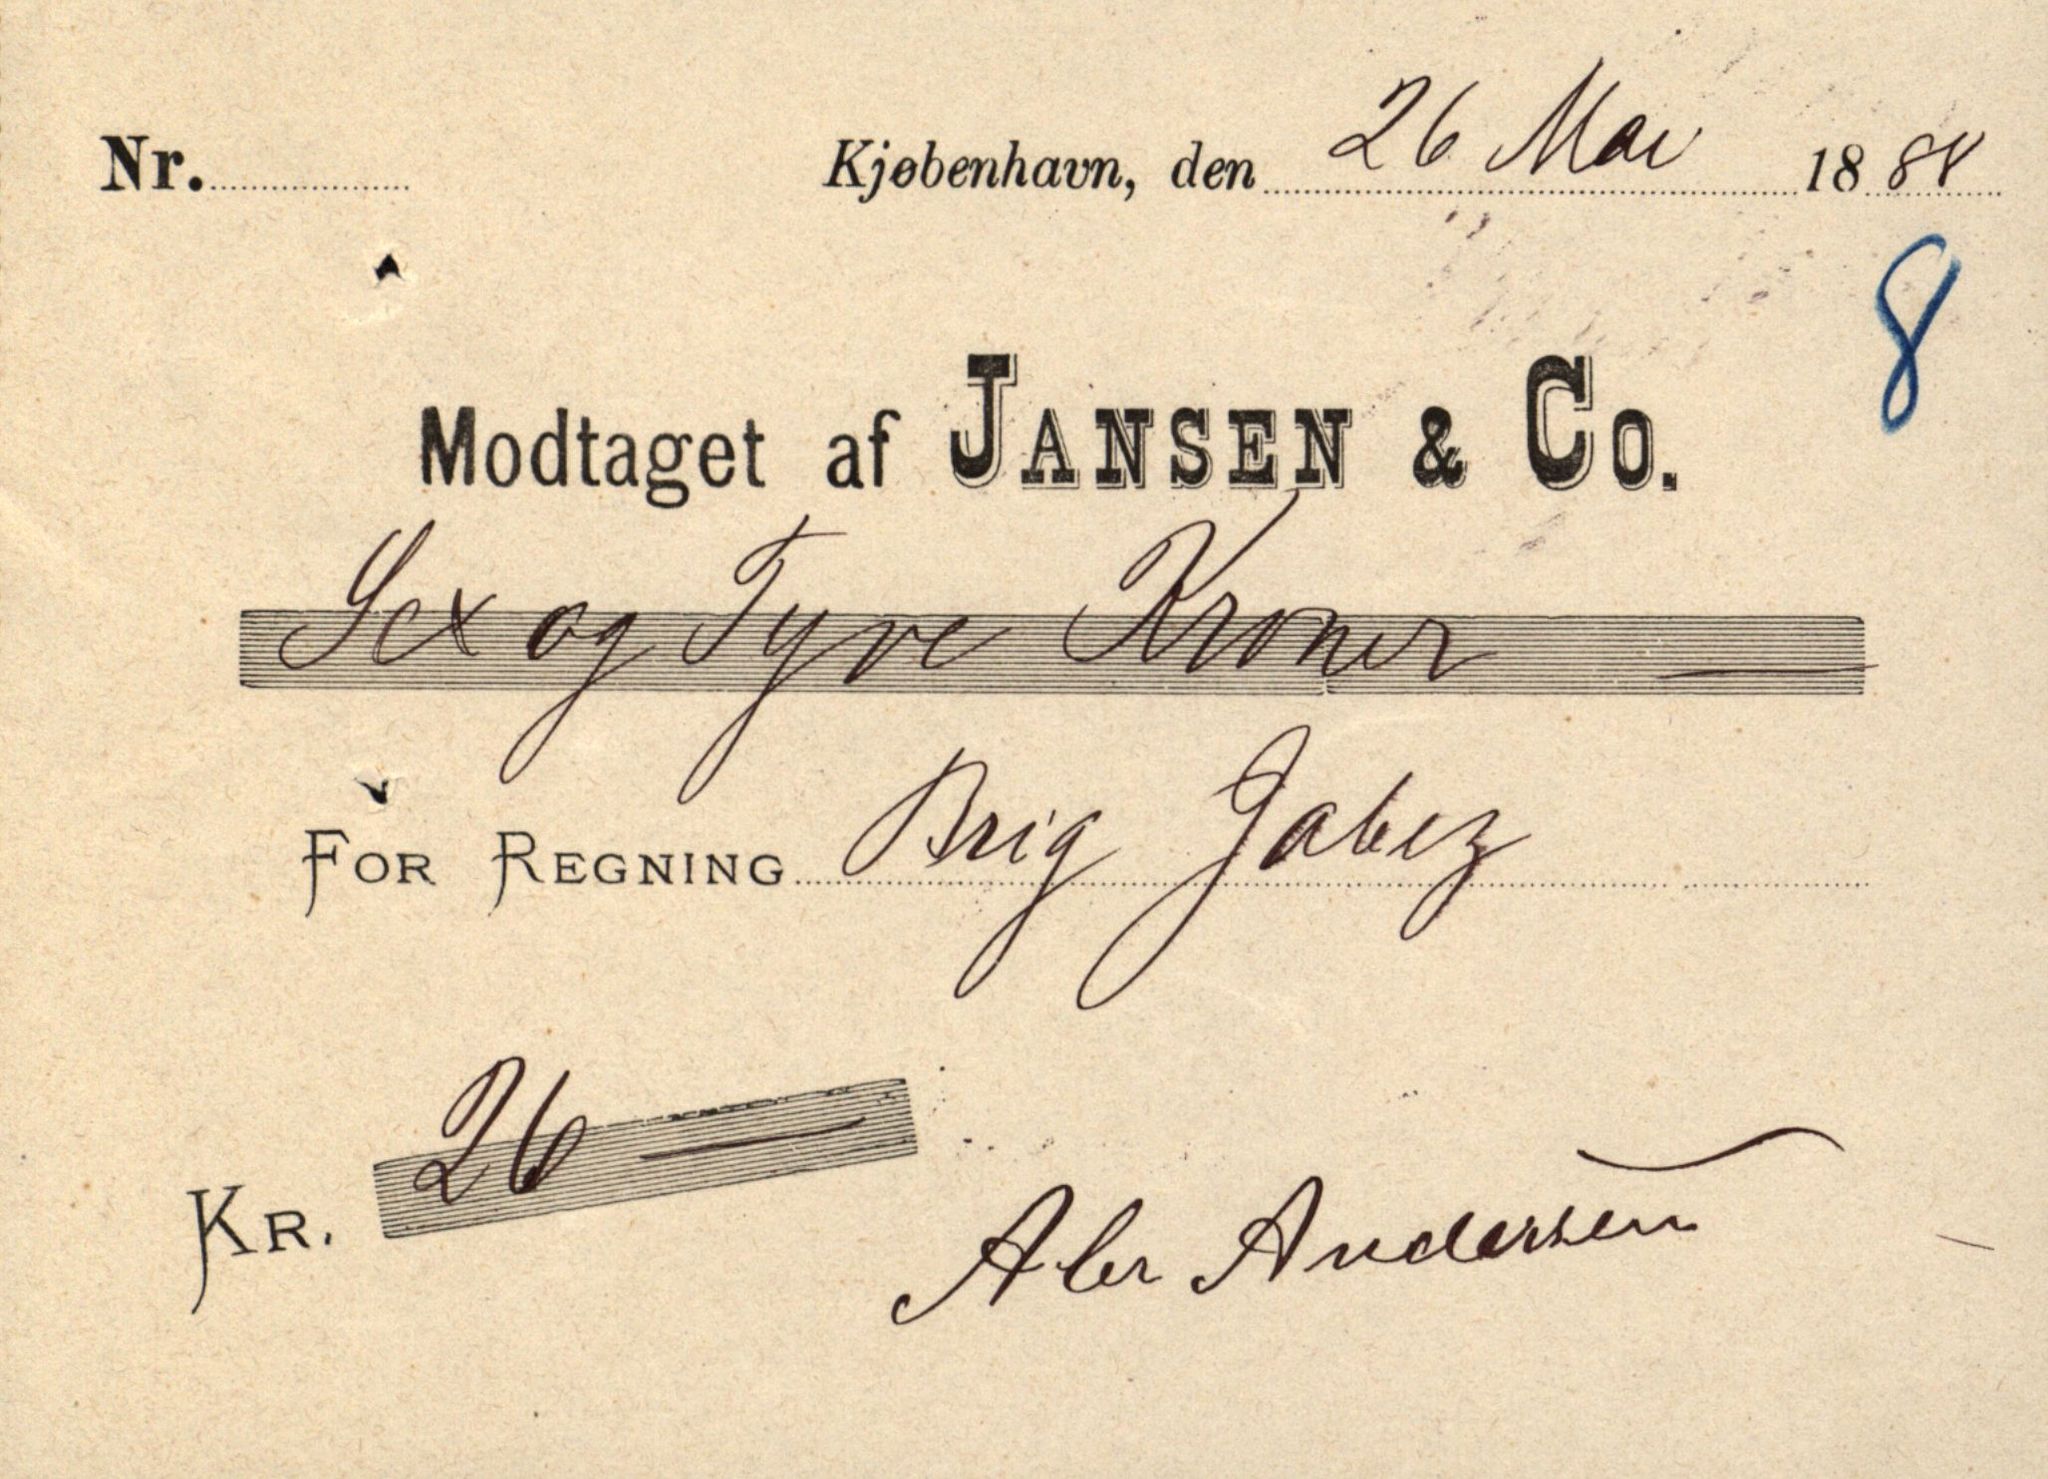 Nr. Kjøbenhavn, den 26 Mai 1884
8
Modtaget af JANSEN & CO.
Sex og Tyve Kroner
FOR REGNING Brig Jabez
KR. 26
Andersen